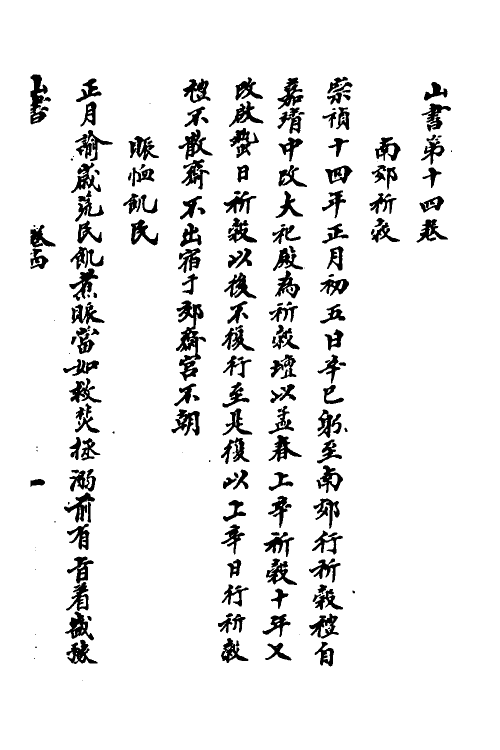 山書第十四卷
南郊祈穀
崇禎十四年正月初五日辛巳躬至南郊行祈穀禮自
嘉靖中改大祀殿為祈穀壇以孟春上辛祈穀十年又
改啟蟄日祈穀以後不復行至是復以上辛日行祈穀
禮不散齋不出宿于郊齋宮不朝
賑恤飢民
正月諭歲荒民飢煮賑當如救焚拯溺前有旨着撫按
山書
卷十四
一